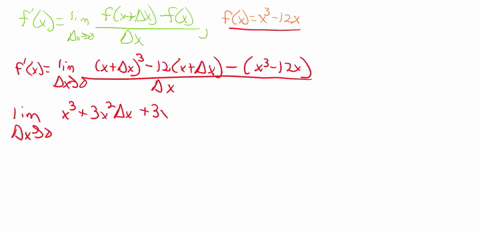 f'(x) = lim Δx→0 f(x+Δx) - f(x) / Δx , f(x) = x³ - 12x
f'(x) = lim Δx→0 (x+Δx)³ - 12(x+Δx) - (x³ - 12x) / Δx
lim Δx→0 x³ + 3x²Δx + 3